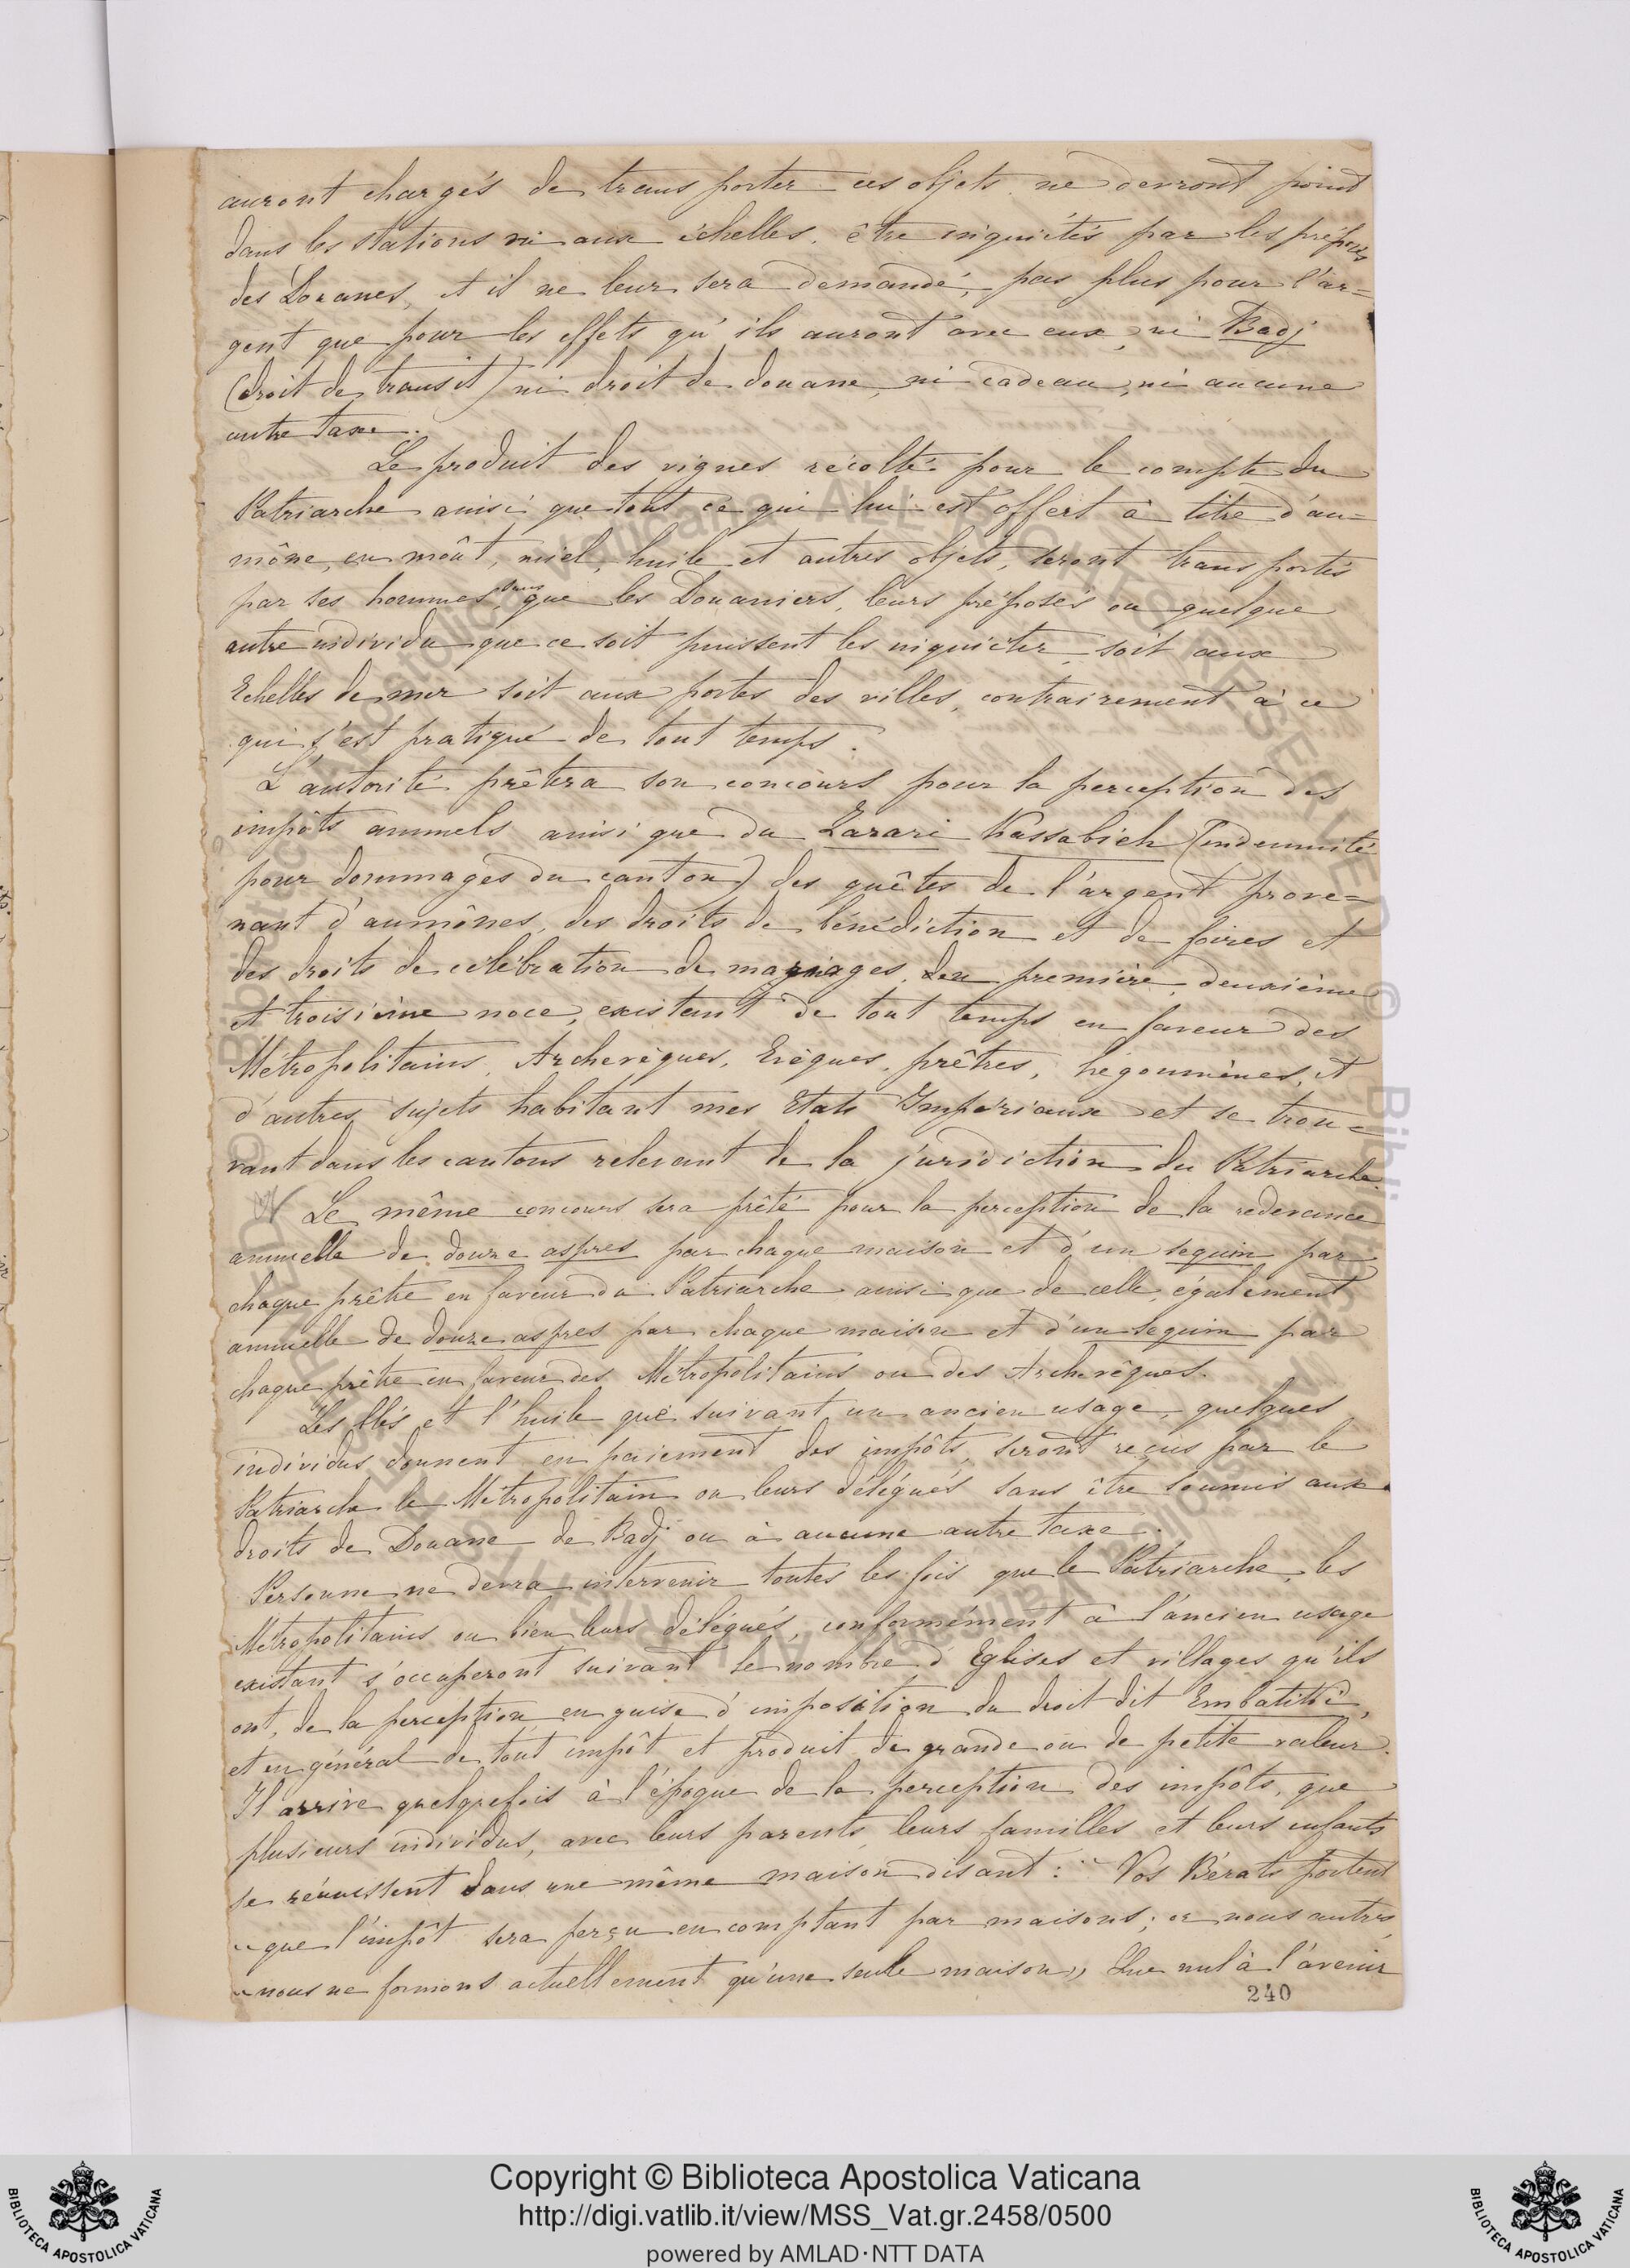 auront chargés de transporter ces objets ne devront point
dans les stations ni aux échelles, être inquiétés par les préposés
des Douanes, et il ne leur sera demandé, pas plus pour l'ar=
gent que pour les effets qu'ils auront avec eux, ni Badj
(droit de transit) ni droit de douane, ni cadeau, ni aucune
autre taxe.
Le produit des vignes récolté pour le compte du
Patriarche ainsi que tout ce qui lui est offert à titre d'au=
mône, en moût, miel, huile et autres objets, seront transportés
par ses hommes, sans que les Douaniers, leurs préposés ou quelque
autre individu que ce soit puissent les inquiéter, soit aux
Echelles de mer soit aux portes des villes, contrairement à ce
qui s'est pratiqué de tout temps.
L'autorité prêtera son concours pour la perception des
impôts annuels ainsi que du Zarari Kassabieh (indemnité
pour dommages du canton) des quêtes de l'argent prove=
nant d'aumônes, des droits de bénédiction et de foires et
des droits de célébration de mariages, en première, deuxième
et troisième noce, existant de tout temps en faveur des
Métropolitains, Archevêques, Evêques, prêtres, hégoumènes, et
d'autres sujets habitant mes Etats Impériaux et se trou=
vant dans les cantons relevant de la juridiction du Patriarche.
Le même concours sera prêté pour la perception de la redevance
annuelle de douze aspres par chaque maison et d'un sequin par
chaque prêtre en faveur du Patriarche ainsi que de celle, également
annuelle de douze aspres par chaque maison et d'un sequin par
chaque prêtre en faveur des Métropolitains ou des Archevêques.
Les blés et l'huile que suivant un ancien usage, quelques
individus donnent en paiement des impôts, seront reçus par le
Patriarche le Métropolitain ou leurs délégués sans être soumis aux
droits de Douane de Badj ou à aucune autre taxe.
Personne ne devra intervenir toutes les fois que le Patriarche, les
Métropolitains ou bien leurs délégués, conformément à l'ancien usage
existant s'occuperont suivant le nombre d'Eglises et villages qu'ils
ont, de la perception en guise d'imposition du droit dit Embatikia,
et en général de tout impôt et produit de grande ou de petite valeur.
Il arrive quelquefois à l'époque de la perception des impôts, que
plusieurs individus, avec leurs parents, leurs familles et leurs enfants
se réunissent dans une même maison disant : " Vos Bérats portent
" que l'impôt sera perçu en comptant par maisons; or nous autres,
" nous ne formons actuellement qu'une seule maison„ Que nul à l'avenir
240
Copyright © Biblioteca Apostolica Vaticana
http://digi.vatlib.it/view/MSS_Vat.gr.2458/0500
powered by AMLAD·NTT DATA
BIBLIOTECA APOSTOLICA VATICANA
BIBLIOTECA APOSTOLICA VATICANA